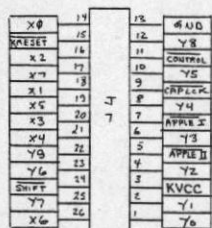 XØ 14 13 GND
XRESET 15 12 Y8
X2 16 11 CONTROL
X7 17 10 Y5
X1 18 9 CAPLCK
X5 19 8 Y4
X3 20 7 APPLE I
X4 21 6 Y3
Y9 22 5 APPLE II
Y6 23 4 Y2
SHIFT 24 3 KVCC
Y7 25 2 Y1
X6 26 1 Y0
J7